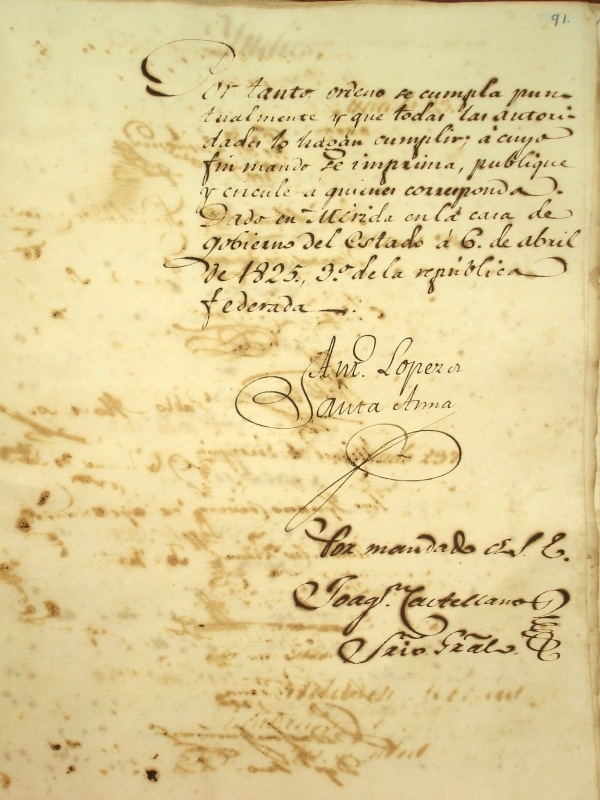 91.
Por tanto ordeno se cumpla pun-
tualmente y que todas las autori-
dades lo hagan cumplir; á cuyo
fin mando se imprima, publique
y circule á quienes corresponda.
Dado en Mérida en la casa de
gobierno del Estado á 6. de abril
de 1825., 3.º de la república
federada
Ant.º Lopez d
Santa Anna
Por mandado de S. E.
Joaq.n Castellanos
Srio Gral.